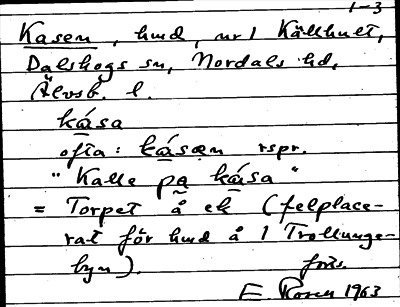 1-3
Kasen, hmd, nr 1 Källhult,
Dalskogs sn, Nordals hd,
Älvsb. l.
kása
ofta: kásæn rspr.
"Kalle pa kása"
= Torpet å ek (felplace-
rat för hmd å 1 Trollunge-
byn). forts.
E. Rosen 1963